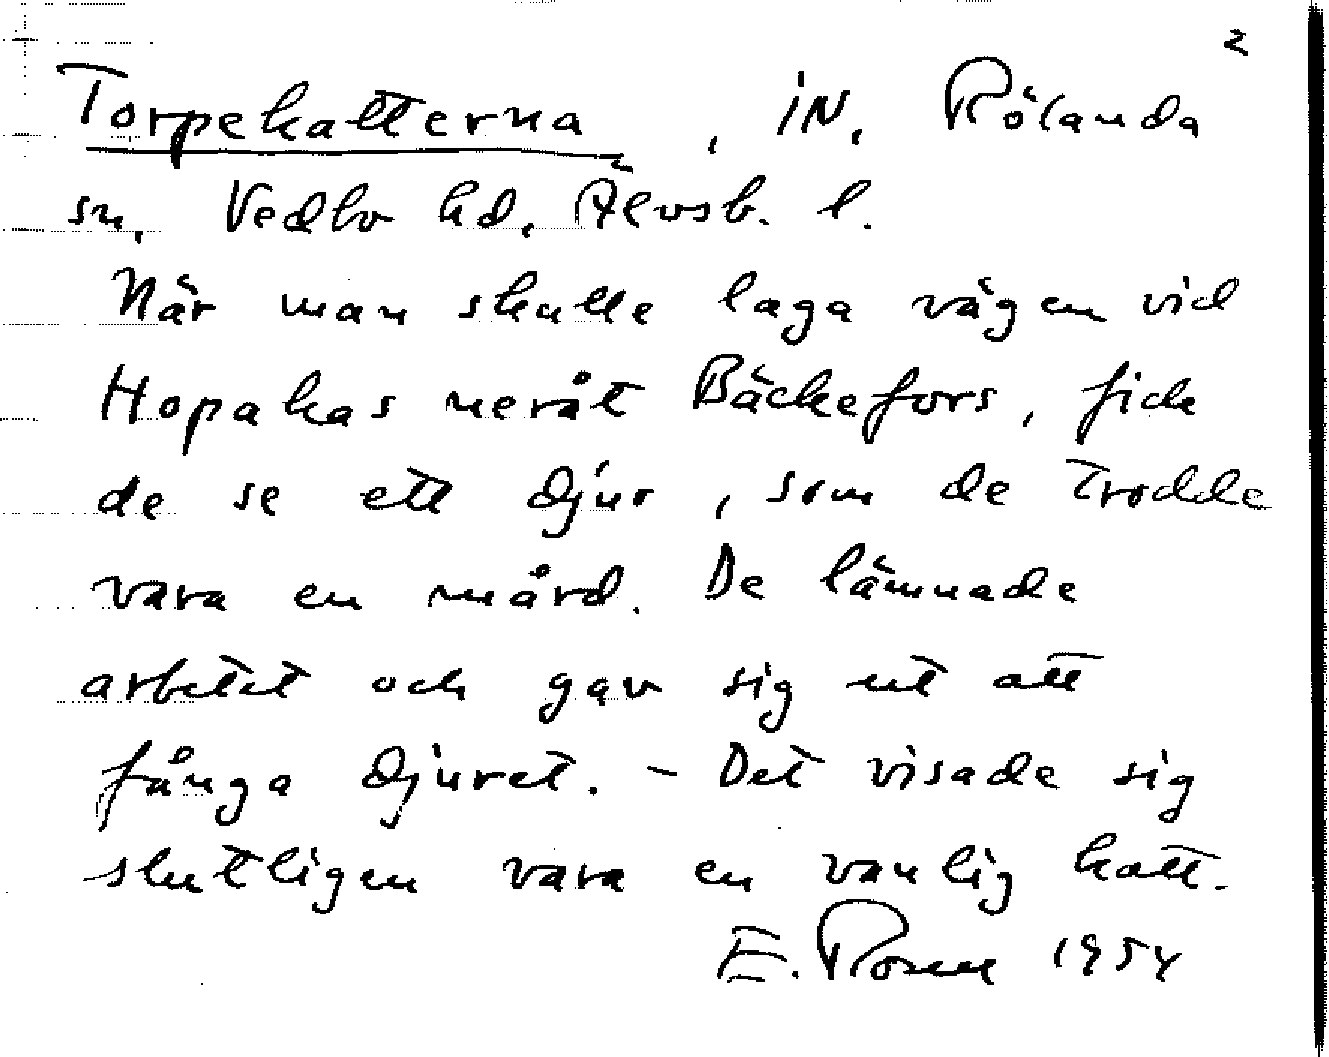 2
Torpekatterna, iN. Rölanda
sn. Vedbo hd. Älvsb. l.
När man skulle laga vägen vid
Hopakas neråt Bäckefors, fick
de se ett djur, som de trodde
vara en mård. De lämnade
arbetet och gav sig ut att
fånga djuret. - Det visade sig
slutligen vara en vanlig katt.
E. Rosen 1954